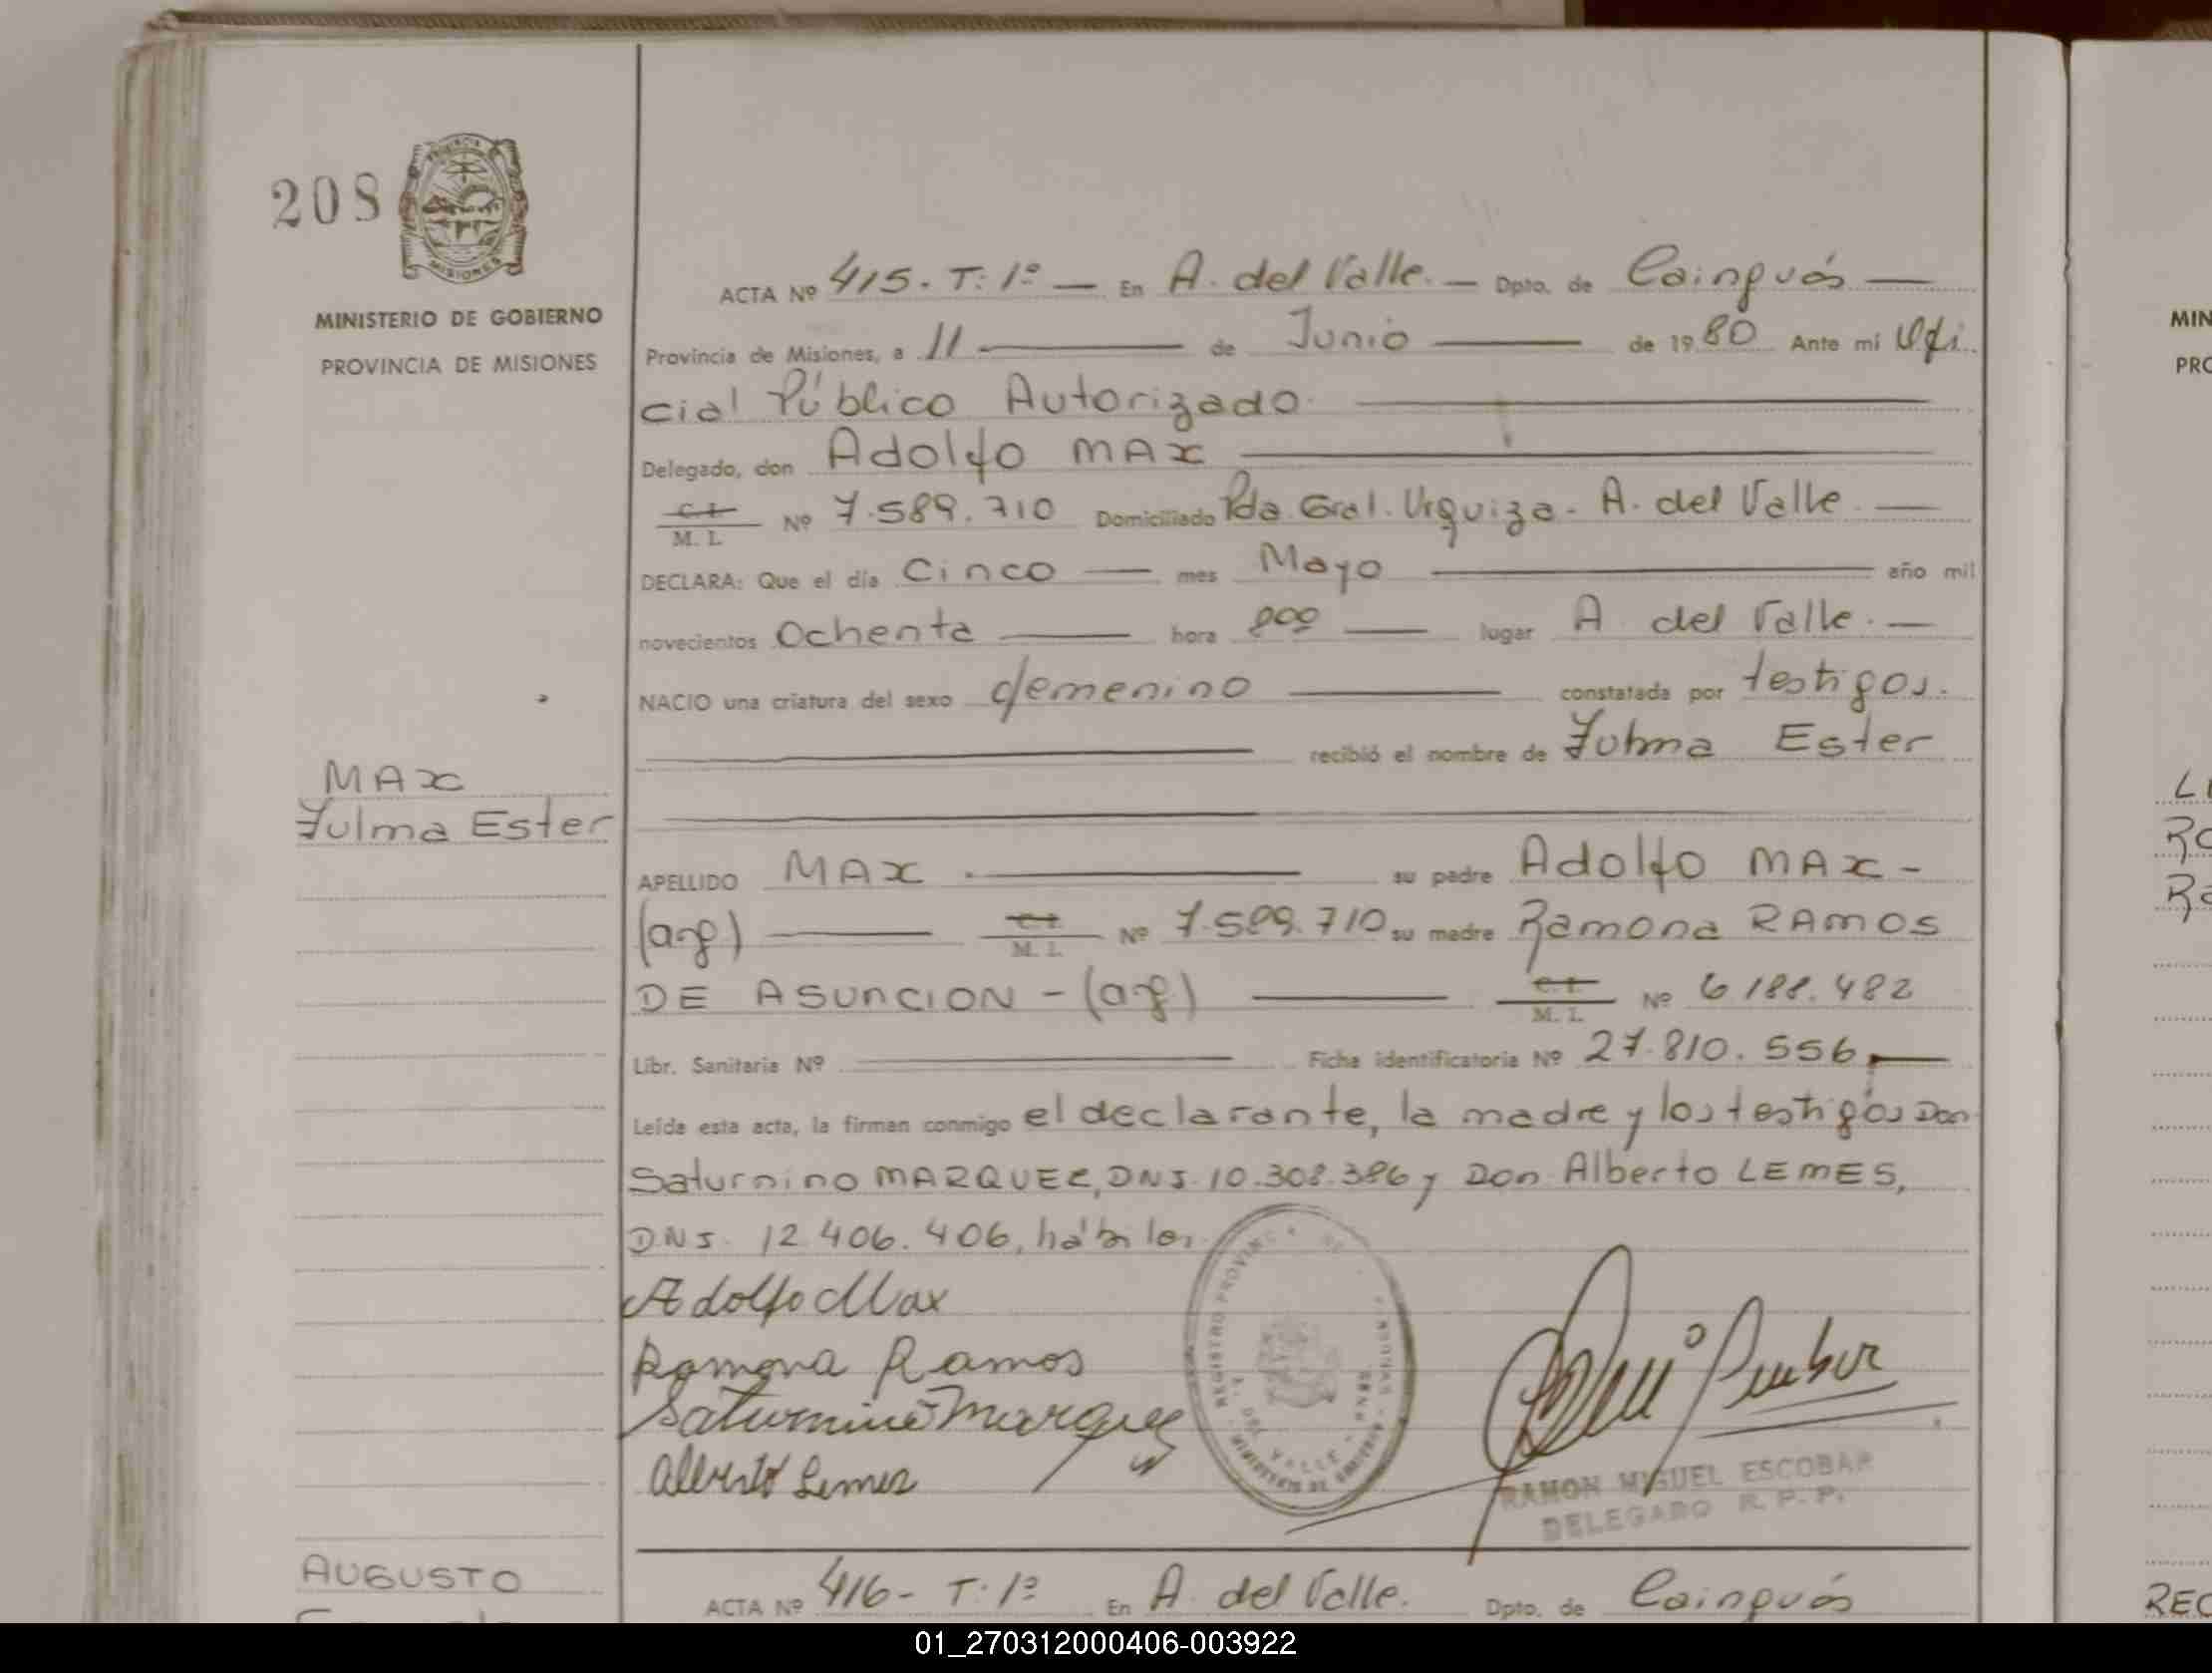 208
MINISTERIO DE GOBIERNO
PROVINCIA DE MISIONES
ACTA Nº 415. T: 1º — En A. del Valle. — Dpto. de Cainguás —
Provincia de Misiones, a 11 — de Junio — de 19 80 Ante mi Ofi
cial Público Autorizado.
Delegado, don Adolfo MAX
C.I. M. I. Nº 7.589.710 Domiciliado Pda. Gral. Urquiza. A. del Valle. —
DECLARA: Que el día Cinco — mes Mayo — año mil
novecientos Ochenta — hora 8oo — lugar A. del Valle. —
NACIO una criatura del sexo femenino — constatada por testigos.
recibió el nombre de Zulma Ester
MAX
Zulma Ester
APELLIDO MAX — su padre Adolfo MAX -
(arg) — C.I. M. I. Nº 7.589.710 su madre Ramona RAMOS
DE ASUNCION - (arg) — C.I. M. I. Nº 6188.482
Libr. Sanitaria Nº — Ficha identificatoria Nº 27.810.556, —
Leída esta acta, la firman conmigo el declarante, la madre y los testigos Don
Saturnino MARQUEZ, DNI. 10.308.386 y Don Alberto LEMES,
DNI. 12.406.406, hábiles.
Adolfo Max
Ramona Ramos
Saturnino Marquez
Alberto Lemes
REGISTRO PROVINC
DEL VALLE
RAMON MIGUEL ESCOBAR
DELEGADO R. P. P.
AUGUSTO
ACTA Nº 416- T: 1º En A. del Valle. Dpto. de Cainguás
01_270312000406-003922